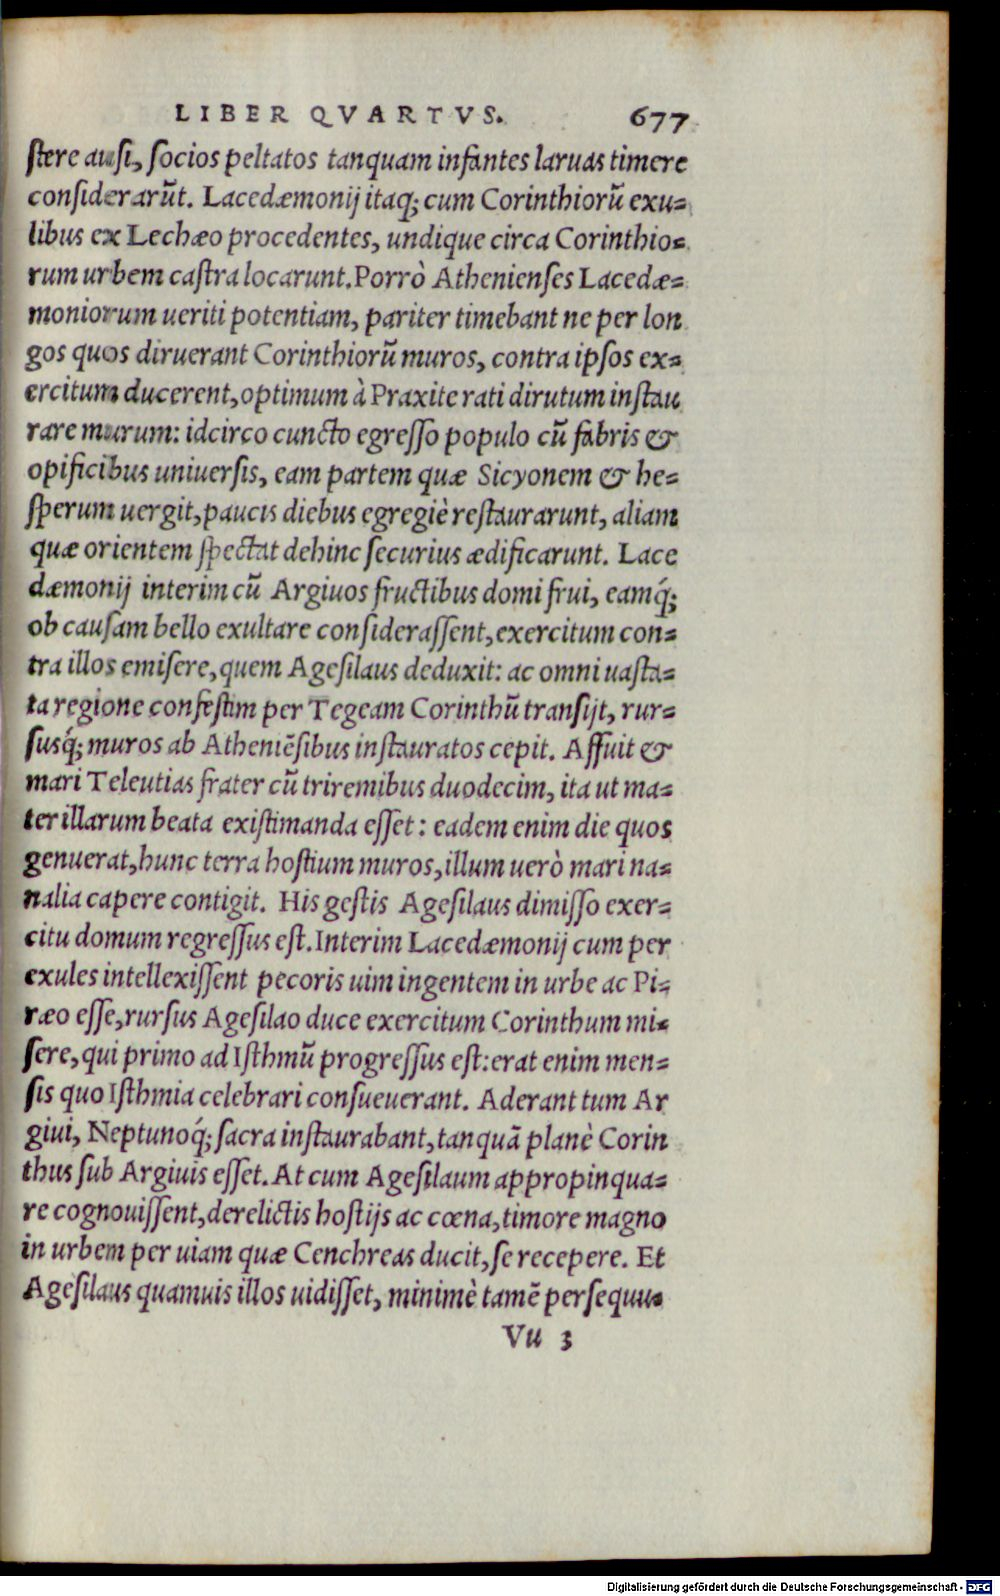 LIBER QVARTVS. 677
stere ausi, socios peltatos tanquam infantes laruas timere
considerarūt. Lacedæmonij itaq; cum Corinthiorū exu=
libus ex Lechæo procedentes, undique circa Corinthio=
rum urbem castra locarunt. Porrò Athenienses Lacedæ=
moniorum ueriti potentiam, pariter timebant ne per lon
gos quos diruerant Corinthiorū muros, contra ipsos ex=
ercitum ducerent, optimum à Praxite rati dirutum instau
rare murum: idcirco cuncto egresso populo cū fabris &
opificibus uniuersis, eam partem quæ Sicyonem & he=
sperum uergit, paucis diebus egregiè restaurarunt, aliam
quæ orientem spectat dehinc securius ædificarunt. Lace
dæmonij interim cū Argiuos fructibus domi frui, eamq́;
ob causam bello exultare considerassent, exercitum con=
tra illos emisere, quem Agesilaus deduxit: ac omni uasta=
ta regione confestim per Tegeam Corinthū transijt, rur=
susq́; muros ab Atheniēsibus instauratos cepit. Affuit &
mari Teleutias frater cū triremibus duodecim, ita ut ma=
ter illarum beata existimanda esset: eadem enim die quos
genuerat, hunc terra hostium muros, illum uerò mari na=
nalia capere contigit. His gestis Agesilaus dimisso exer=
citu domum regressus est. Interim Lacedæmonij cum per
exules intellexissent pecoris uim ingentem in urbe ac Pi=
ræo esse, rursus Agesilao duce exercitum Corinthum mi=
sere, qui primo ad Isthmū progressus est: erat enim men=
sis quo Isthmia celebrari consueuerant. Aderant tum Ar
giui, Neptunoq́; sacra instaurabant, tanquā planè Corin
thus sub Argiuis esset. At cum Agesilaum appropinqua=
re cognouissent, derelictis hostijs ac cœna, timore magno
in urbem per uiam quæ Cenchreas ducit, se recepere. Et
Agesilaus quamuis illos uidisset, minimè tamē persequu=
Vu 3
Digitalisierung gefördert durch die Deutsche Forschungsgemeinschaft - DFG